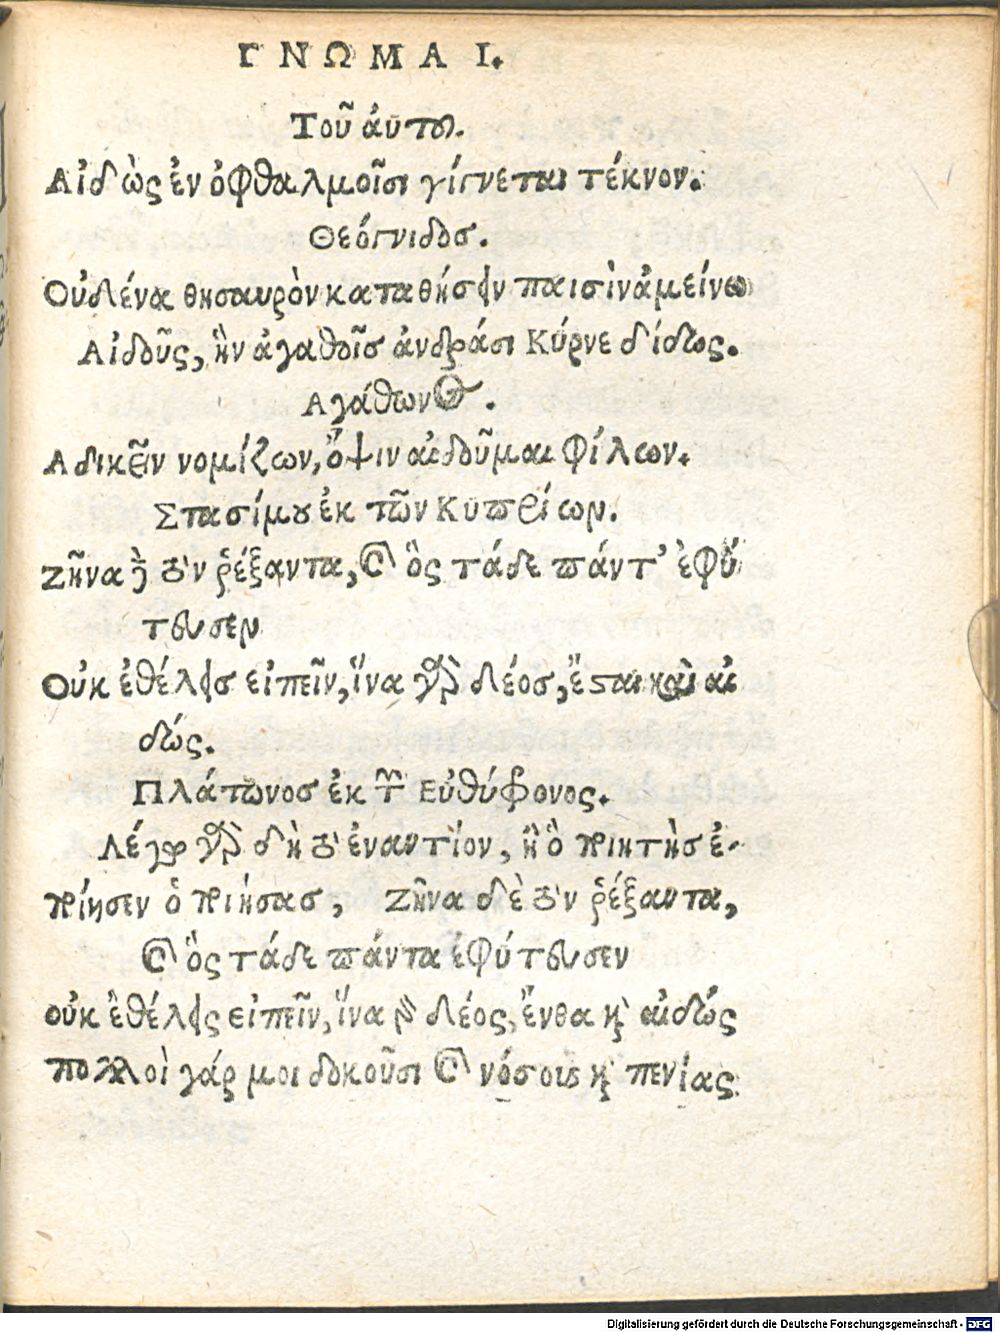 ΓΝΩΜΑΙ.
Τοῦ ἀυτου.
Αἰδὼς ἐν ὀφθαλμοῖσι γίγνεται τέκνον.
Θεόγνιδοσ.
Οὐδένα θησαυρὸν καταθήσειν παισὶν ἀμείνω
Αἰδοῦς, ἣν ἀγαθοῖσ ἀνδράσι Κύρνε δίδως.
Αγάθωνος.
Αδικεῖν νομίζων, ὄψιν αἰδοῦμαι φίλων.
Στασίμου ἐκ τῶν Κυπρίων.
Ζῆνα δὲ τὸν ῥέξαντα, καὶ ὃς τάδε πάντ' ἐφύ
τευσεν
Οὐκ ἐθέλεισ εἰπεῖν, ἵνα γὰρ δέοσ, ἔσται καὶ αἰ
δώς.
Πλάτωνοσ ἐκ τοῦ Εὐθύφρονος.
Λέγω γὰρ δὴ τὸ ἐναντίον, ἢ ὃ ποιητὴσ ἐ-
ποίησεν ὁ ποιήσασ, Ζῆνα δὲ τὸν ῥέξαντα,
καὶ ὃς τάδε πάντα ἐφύτευσεν
οὐκ ἐθέλεις εἰπεῖν, ἵνα γὰρ δέος, ἔνθα καὶ αἰδώς
πολλοὶ γάρ μοι δοκοῦσι καὶ νόσους καὶ πενίας
Digitalisierung gefördert durch die Deutsche Forschungsgemeinschaft - DFG